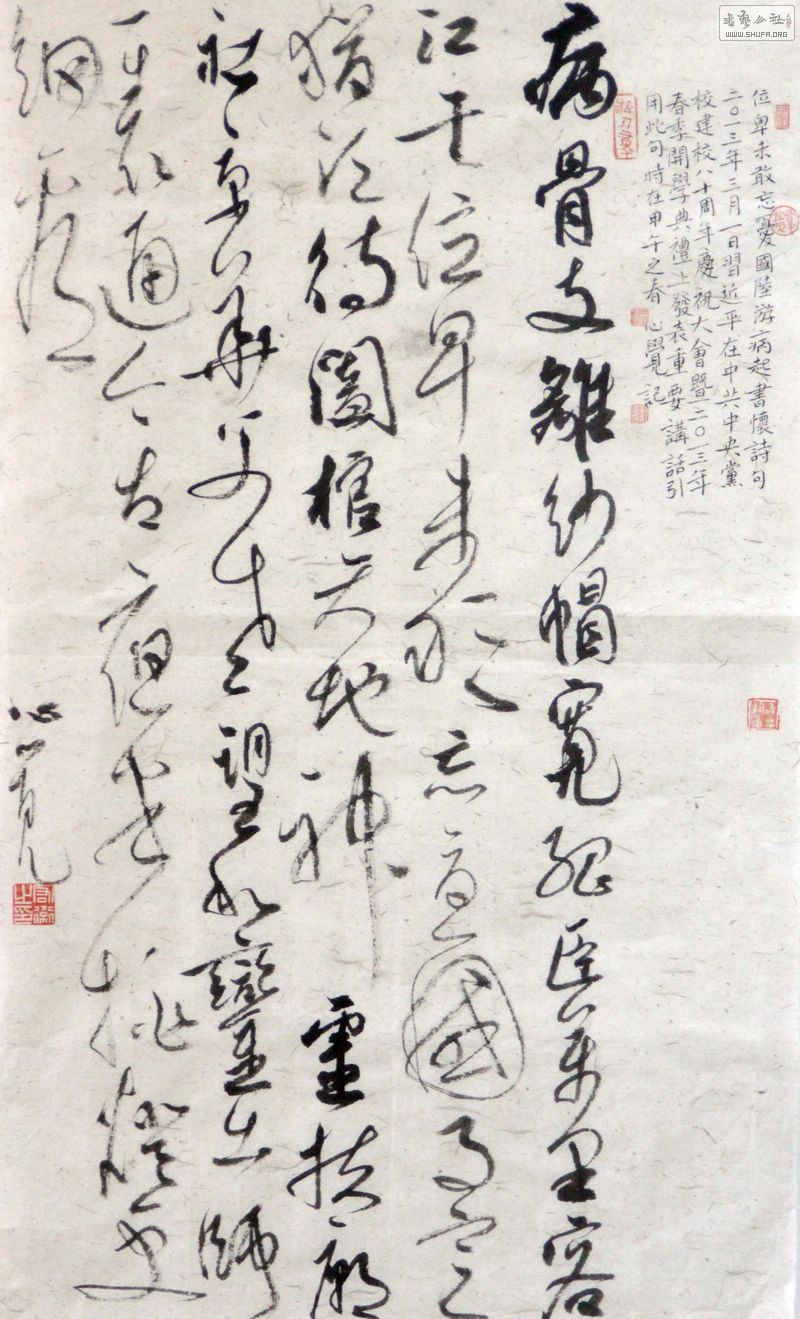 位卑未敢忘憂國陸游病起書懷詩句
二〇一三年三月一日習近平在中共中央黨
校建校八十周年慶祝大會暨二〇一三年
春季開學典禮上發表重要講話引
用此句時在甲午之春心覺記
病骨支離紗帽寬孤臣萬里客
江干位卑未敢忘憂國事定
猶須待闔棺天地神靈扶廟
社京華父老望和鑾出師
一表通今古夜半挑燈更
細看
心覺
書藝公社
WWW.SHUFA.ORG